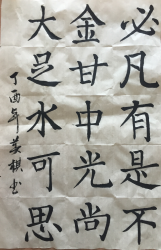 必凡有是不
金甘中光尚
大足水可思
丁酉年